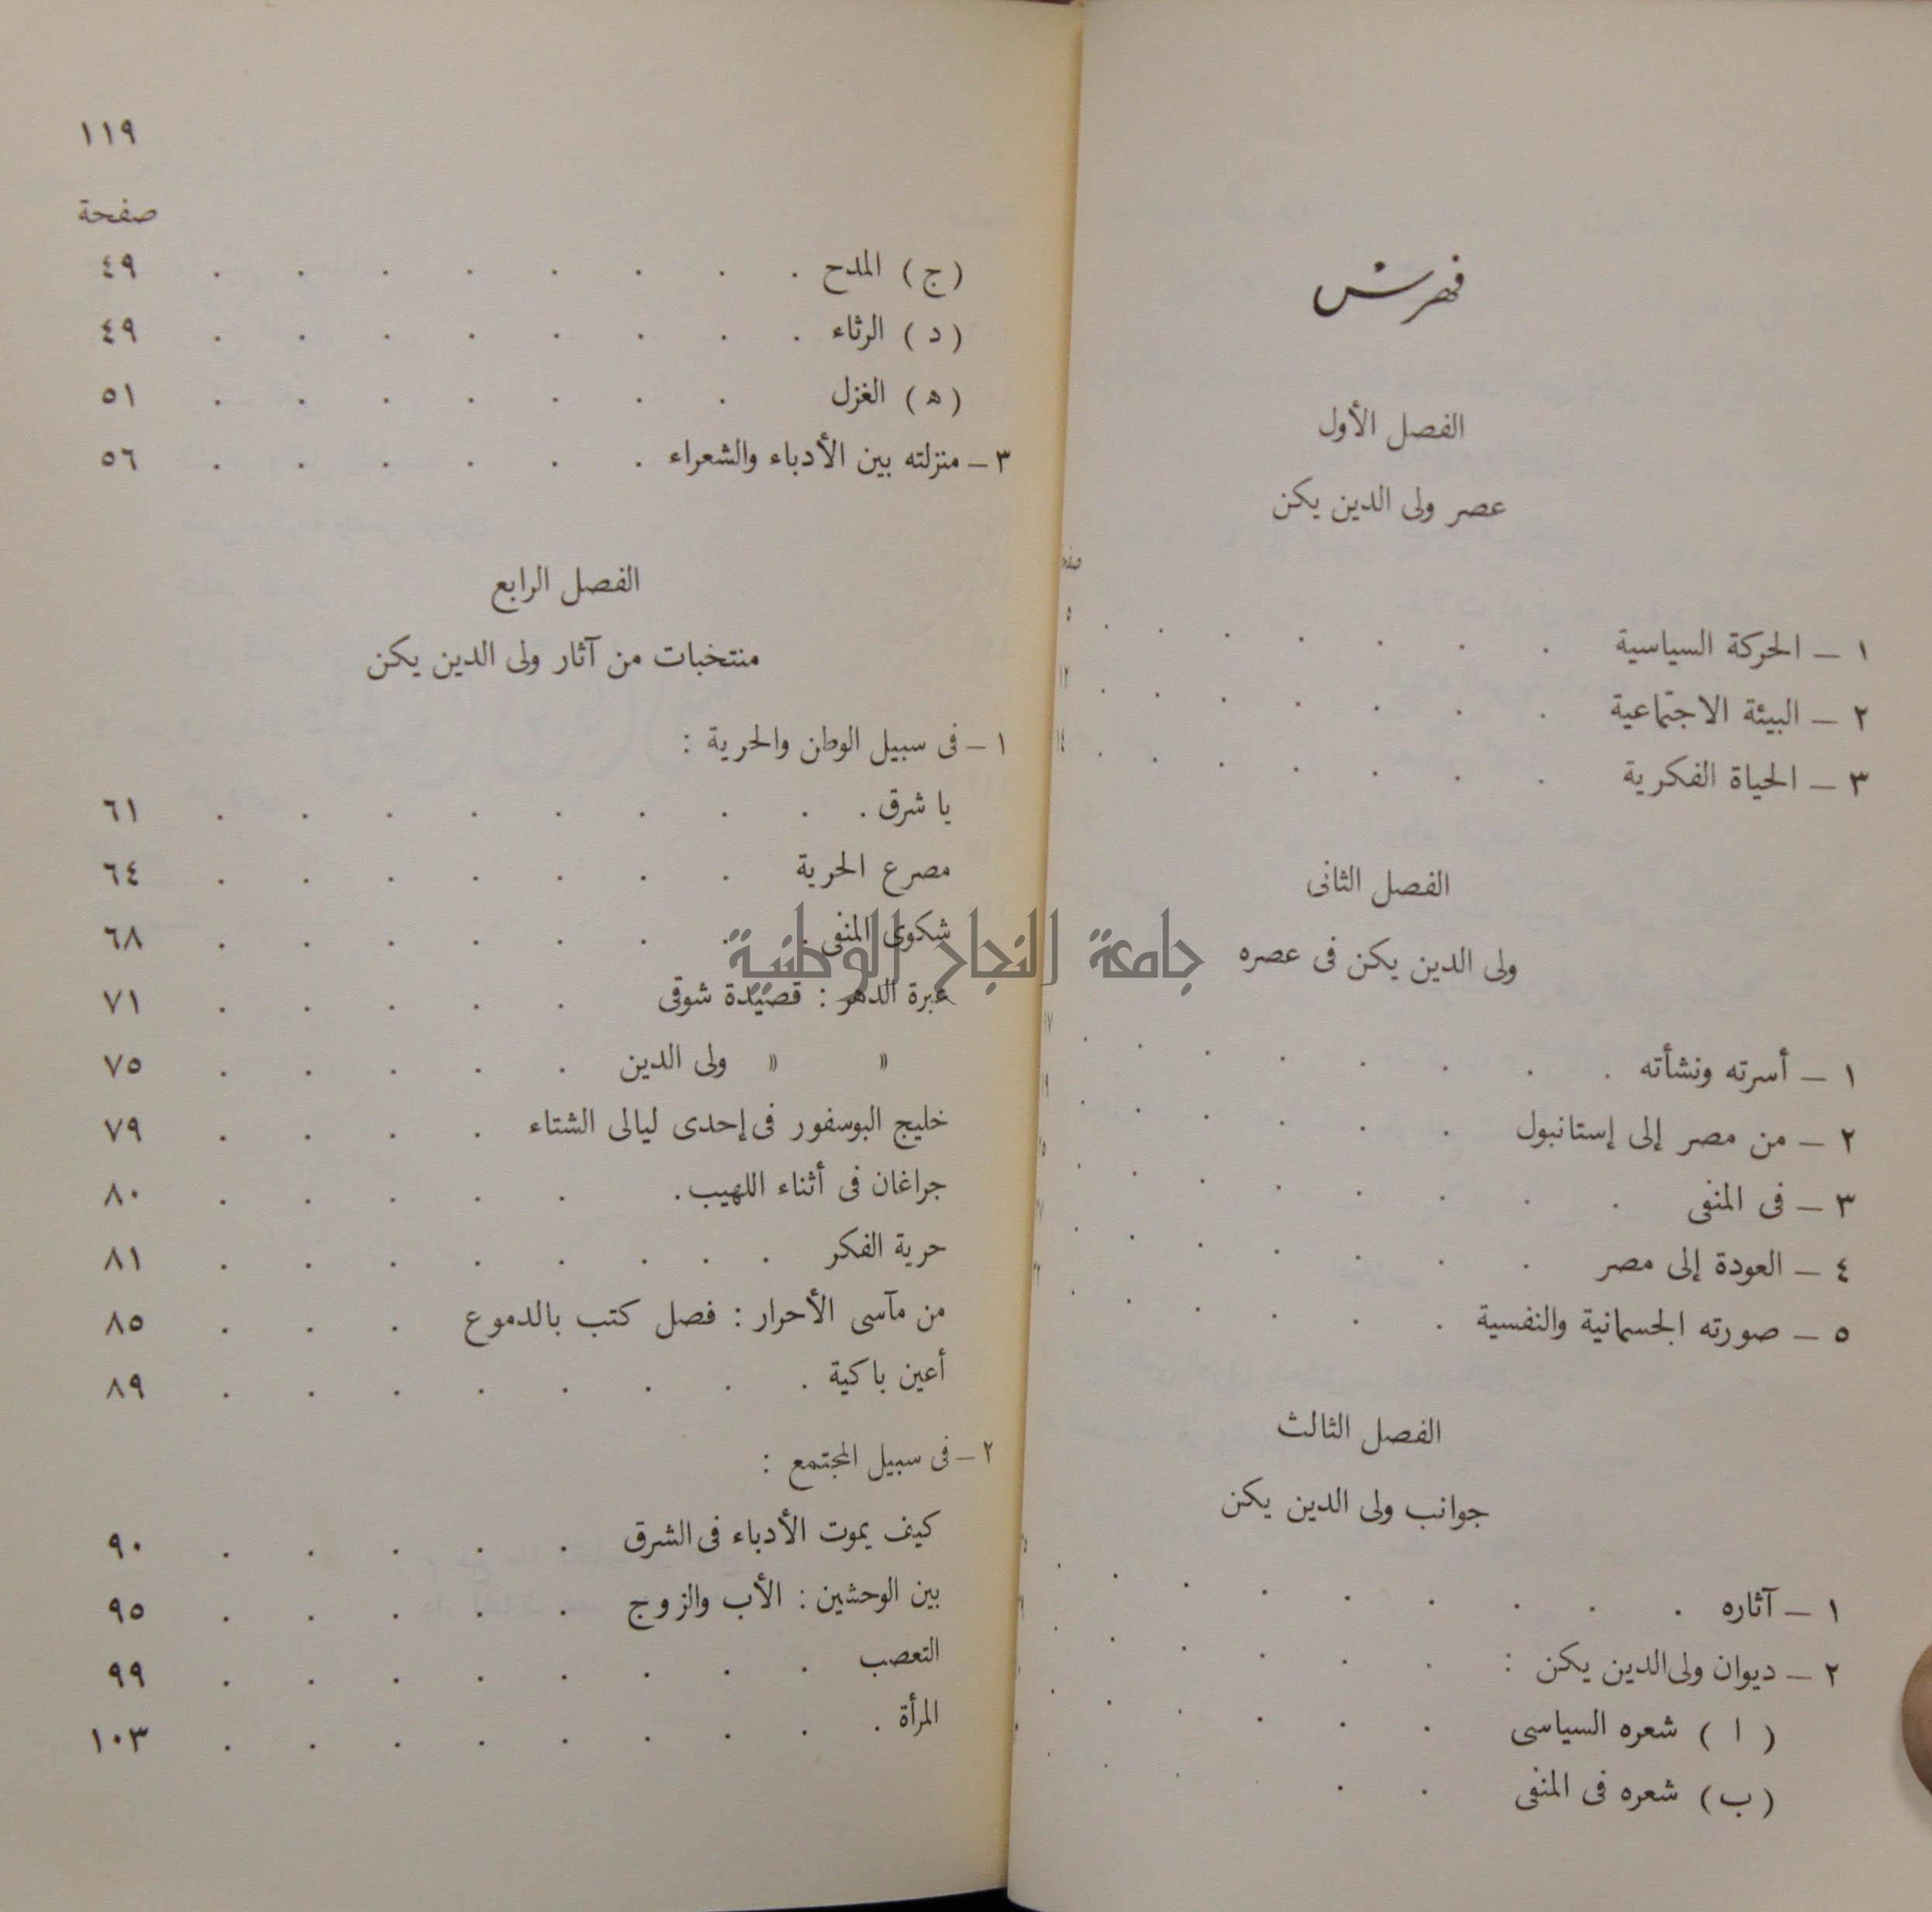 فهرس
الفصل الأول
عصر ولى الدين يكن
١ – الحركة السياسية . . . . . . . ٥
٢ – البيئة الاجتماعية . . . . . . . ١٢
٣ – الحياة الفكرية . . . . . . . ١٤
الفصل الثانى
ولى الدين يكن فى عصره
١ – أسرته ونشأته . . . . . . . ١٧
٢ – من مصر إلى إستانبول . . . . . . ١٩
٣ – فى المنفى . . . . . . .
٤ – العودة إلى مصر . . . . . . .
٥ – صورته الجسمانية والنفسية . . . . . .
الفصل الثالث
جوانب ولى الدين يكن
١ – آثاره . . . . . . . .
٢ – ديوان ولى الدين يكن :
( ا ) شعره السياسى . . . . . .
(ب) شعره فى المنفى . . . . . .
١١٩
صفحة
(ج) المدح . . . . . . . . ٤٩
(د) الرثاء . . . . . . . . ٤٩
(ه) الغزل . . . . . . . ٥١
٣ – منزلته بين الأدباء والشعراء . . . . . . ٥٦
الفصل الرابع
منتخبات من آثار ولى الدين يكن
١ – فى سبيل الوطن والحرية :
يا شرق . . . . . . . . . ٦١
مصرع الحرية . . . . . . . ٦٤
شكوى المنفى . . . . . . . . ٦٨
عبرة الدهر : قصيدة شوقى . . . . . ٧١
» » ولى الدين . . . . . ٧٥
خليج البوسفور فى إحدى ليالى الشتاء . . . . ٧٩
جراغان فى أثناء اللهيب . . . . . . ٨٠
حرية الفكر . . . . . . . . ٨١
من مآسى الأحرار : فصل كتب بالدموع . . . ٨٥
أعين باكية . . . . . . . . ٨٩
٢ – فى سبيل المجتمع :
كيف يموت الأدباء فى الشرق . . . . . ٩٠
بين الوحشين : الأب والزوج . . . . . ٩٥
التعصب . . . . . . . . ٩٩
المرأة . . . . . . . . . ١٠٣
جامعة النجاح الوطنية